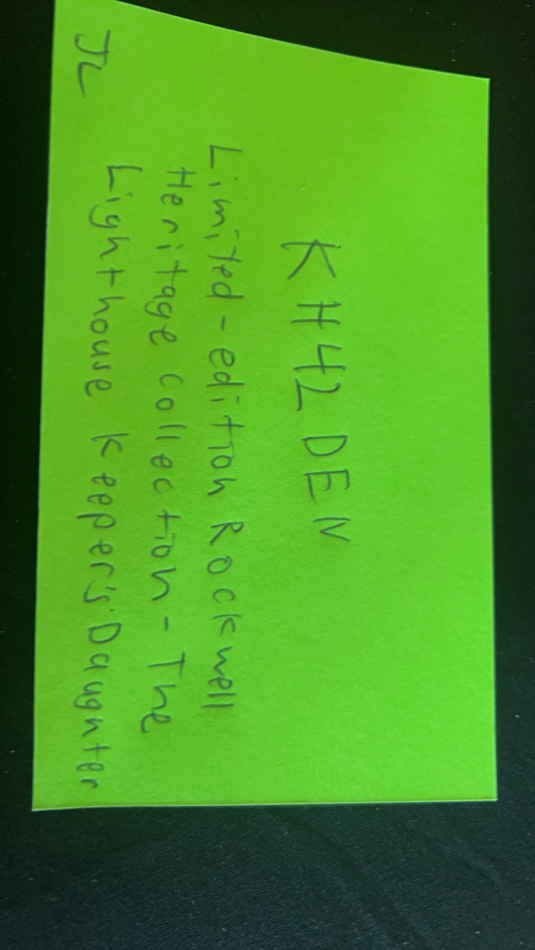 KH42DEN
Limited-edition Rockwell
Heritage Collection - The
Lighthouse Keeper's Daughter
JL